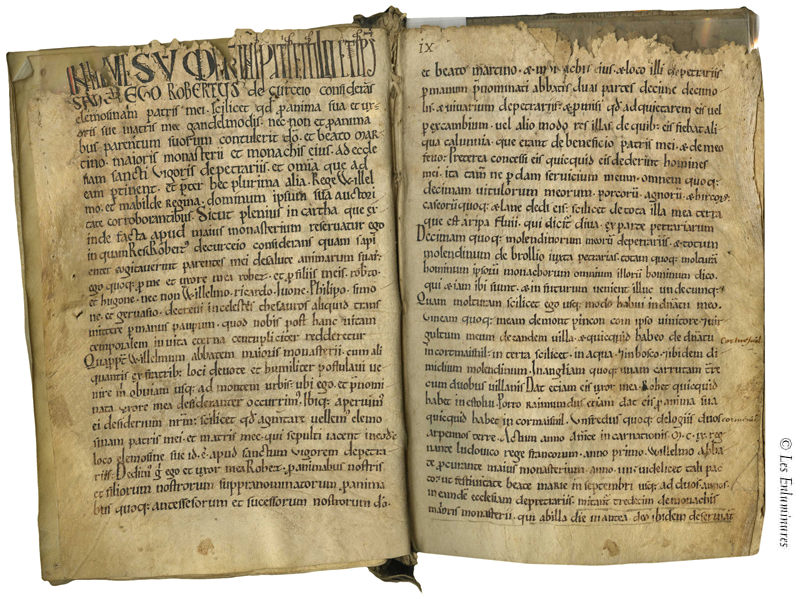 EGO ROBERTUS de curceio considerās
elemosinam patris mei. scilicet qđ p anima sua et ux
oris sue matris mee gandelmodis. nec non et p anima
bus parentum suorum contulerit dō. et beato mar
tino. maioris monasterii et monachis eius. ad eccle
siam sancti vigoris de petrariis. et omīa que ad
eam ptinent. et preter hec plurima alia. Rege Willel
mo. et mabilde regina. dominum ipsum sua auctori
tate corroborantibus. Sicut plenius in cartha que ex
inde facta apud maius monasterium reservatur ego
in quam Rotbert' de curceio considerans quam sapi
enter cogitaverint parentes mei de salute animarum suar'
ego quoq; p me et uxore mea robet. et p filiis meis. rotb̄to.
et hugone. nec non Willelmo. ricardo. Ivone. Philipo. simo
ne. et gervasio. decrevi in celestes thesauros aliquid trans
mittere p manus paupum. quod nobis post hanc vitam
temporalem in vita eterna centupliciter redderetur
Quappt' Willelmum abbatem maioris monasterii. cum ali
quantis ex fratrib; loci devote et humiliter postulavi ve
nire in obviam usq; ad montem urbis. ubi ego et p̄nomi
nata uxore mea desideranter occurrim'. Ibiq; aperuim'
ei desiderium nr̄m. scilicet qđ augmtare vellem' elemo
sinam patris mei. et matris mee. qui sepulti iacent in eodē
loco elemosine sue id. ē. apud sanctum Vigorem de petra
riis. Dedim' g̊ ego et uxor mea Robet. p animabus nostris
et filiorum nostrorum suppranominatorum. p anima
bus quoq; ancessesorum et sucessorum nostrorum dō.
IX
et beato martino. & monachis eius. & loco illi de petrariis
p manum p̄nominati abbatis duas partes decime de cimo
lis. & vivarium de petrariis. & p̄misi qđ adquietarem eis vel
p excambium. vel alio modo res illas de quib; eis fiebat ali
qua calumnia. que erant de beneficio patris mei. & de meo
fevo. Preterea concessi eis quicquid eis dederint homines
mei. ita tam̄ ne pdam servicium meum. omnem quoq;
decimam vitulorum meorum. porcorū. agnorū. & hircorū.
caseorū quoq; & lane dedi eis. scilicet de tota illa mea terra
que est a ripa flum̄. qui dicit' diva. ex parte petrariarum
Decimam quoq; molendinorum meorū de petrariis. & totum
molendinum de brollio iuxta petrarias. totam quoq; molturā
hominum ipsorū monachorum omnium illorū hominum dico.
qui & iam ibi sunt. & in futurum venient illuc undecunq;.
Quam molturam scilicet ego usq; modo habui in dnīcatu meo.
Vineam quoq; meam de mont pincon cum ipso vinitore. & vir
gultum meum de randem villa. & quicquid habeo de dnīcatu
in cormaisnil. in terra scilicet. in aqua. & in bosco. & ibidem di
midium molendinum. In anglīam quoq; unam carrucam t̄re
cum duobus villanis. Dat etiam eis uxor mea Robet quicquid
habet in estolm. Porro raimundus etiam dat eis p anima sua
quicquid habet in cormaisnil. Unfredus quoq; de logiis duos
arpennos terre. Actum anno dn̄ice incarnationis. M. C. ix. reg
nante ludovico rege francorum. anno primo. Willelmo abba
te. pcurante maius monasterium. anno. iiii. videlicet tali pac
to. ut festivitate beate marie in septembri usq; ad duos annos.
in eandē ecclesiam de petrariis. mittant tredecim de monachis
maioris monasterii. qui ab illa die in antea dō ibidem deserviāt
© Les Enluminures